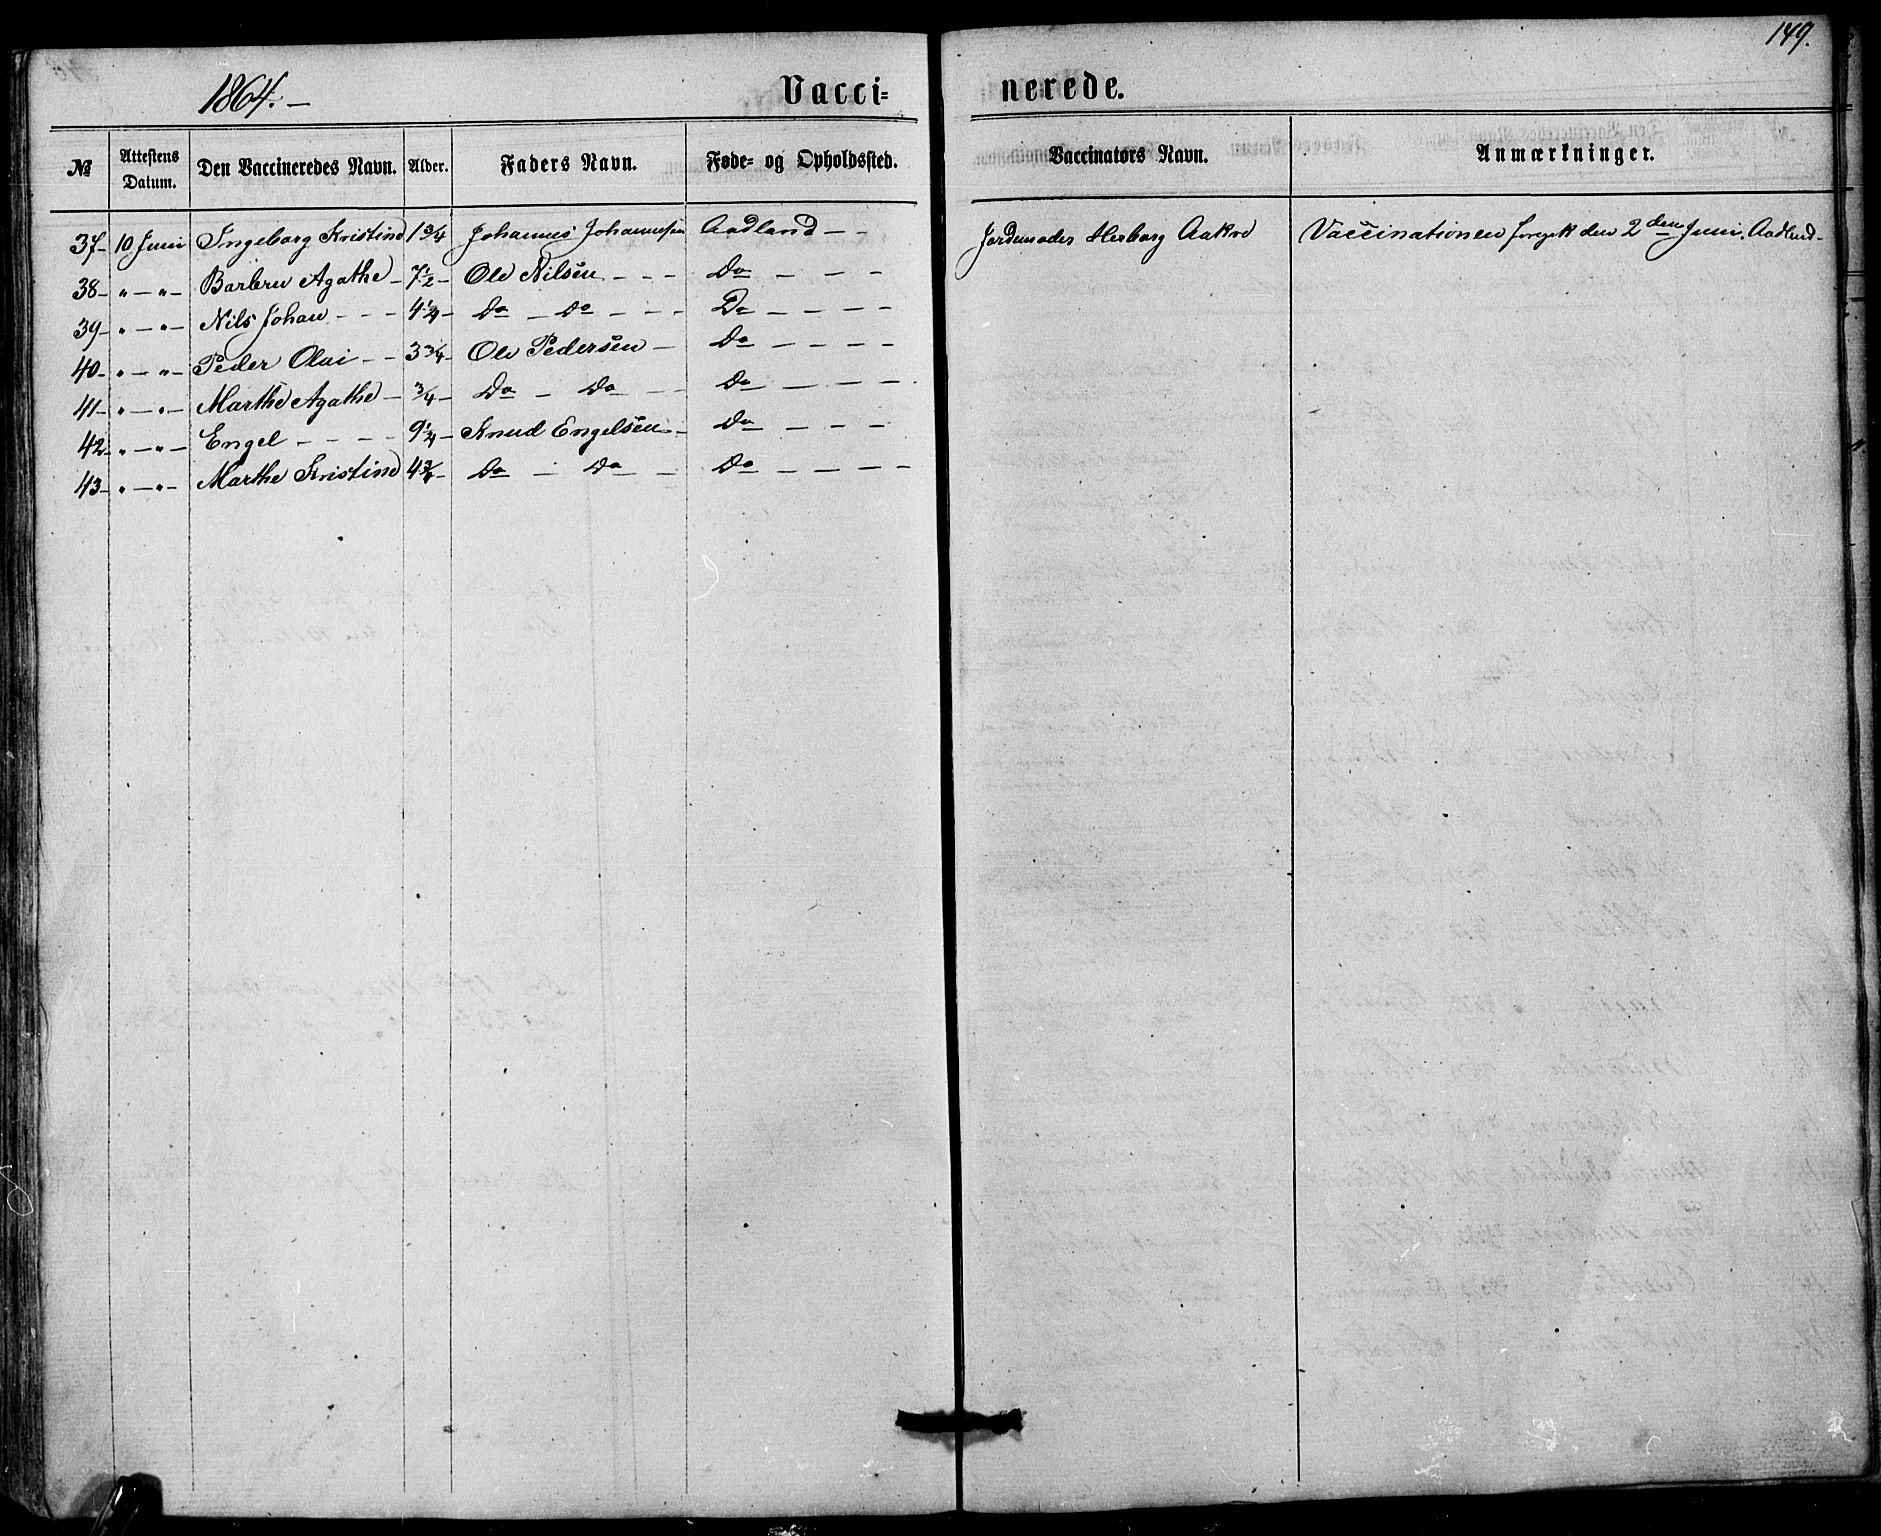 149.
1864. – Vacci= nerede.
№ Attestens Datum. Den Vaccineredes Navn. Alder. Faders Navn. Føde= og Opholdssted. Vaccinators Navn. Anmærkninger.
37 – 10 Juni Ingeborg Kristine 1 3/4 Johannes Johannesen Aadland – – Jordemoder Herborg Aakre Vaccinationen foregik den 2den Juni. Aadland –
38 – " – " – Barbru Agathe – 7 1/2 – Ole Nilsen – – – Do – – – –
39 – " – " – Nils Johan – – – 4 1/4 – Do – Do – – – Do – – – –
40 – " – " – Peder Olai – – 3 3/4 – Ole Pedersen – Do – – – –
41 – " – " – Marthe Agathe – 3/4 – Do – Do – – Do – – – –
42 – " – " – Engel – – – – 9 1/4 – Knud Engelsen – Do – – – –
43 – " – " – Marthe Kristine 4 3/4 – Do – Do – Do – – – –